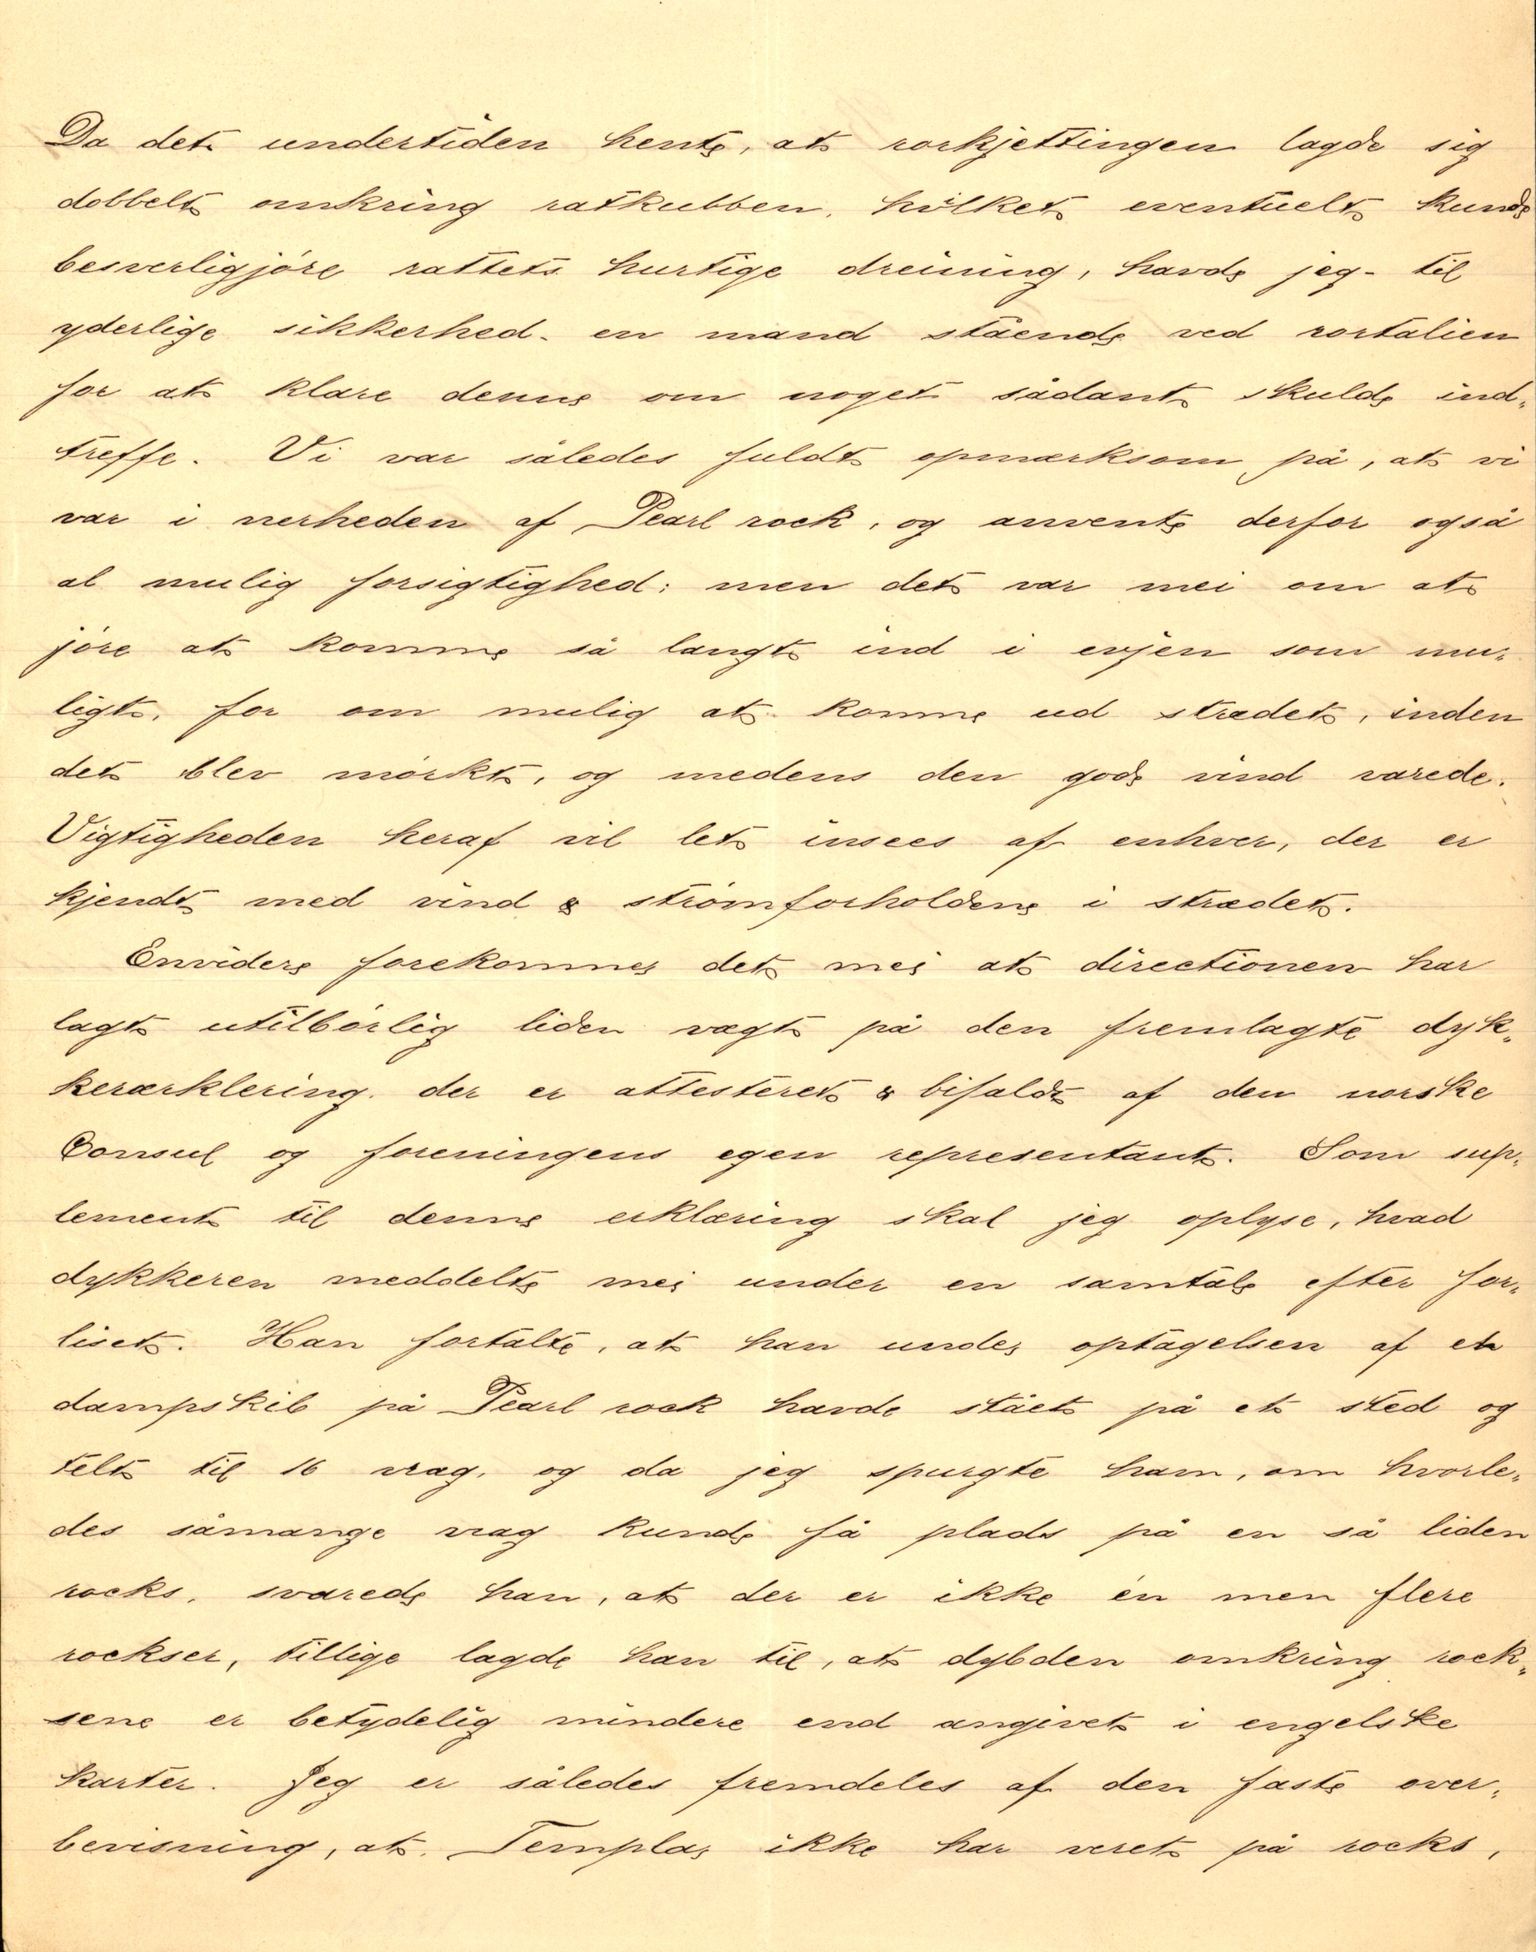 Da det undertiden hente, at rorkjettingen lagde sig
dobbelt omkring ratkubben, hvilket eventuelt kunde
besverligjøre rattets hurtige dreining, havde jeg - til
yderlige sikkerhed - en mand stående ved rortalien
for at klare denne om noget sådant skulde ind-
treffe. Vi var således fuldt opmærksom på, at vi
var i nerheden af Pearl rock, og anvente derfor også
al mulig forsigtighed; men det var mei om at
jøre at komme så langt ind i evjen som mu-
ligt, for om mulig at komme ud strædet, inden
det blev mørkt, og medens den gode vind varede.
Vigtigheden heraf vil let insees af enhver, der er
kjendt med vind & strømforholdene i strædet.
Envidere forekommer det mei at directionen har
lagt utilbørlig liden vægt på den fremlagte dyk-
kerærklering, der er attesteret & bifaldt af den norske
Consul og foreningens egen representant. Som sup-
lement til denne erklæring skal jeg oplyse, hvad
dykkeren meddelte mei under en samtale efter for-
liset. Han fortalte, at han under optagelsen af et
dampskib på Pearl rock havde stået på et sted og
telt til 16 vrag, og da jeg spurgte ham, om hvorle-
des såmange vrag kunde få plads på en så liden
rocks, svarede han, at der er ikke én men flere
rockser, tillige lagde han til, at dybden omkring rock-
sene er betydelig mindere end angivet i engelske
karter. Jeg er således fremdeles af den faste over-
bevisning, at Templar ikke har veret på rocks,